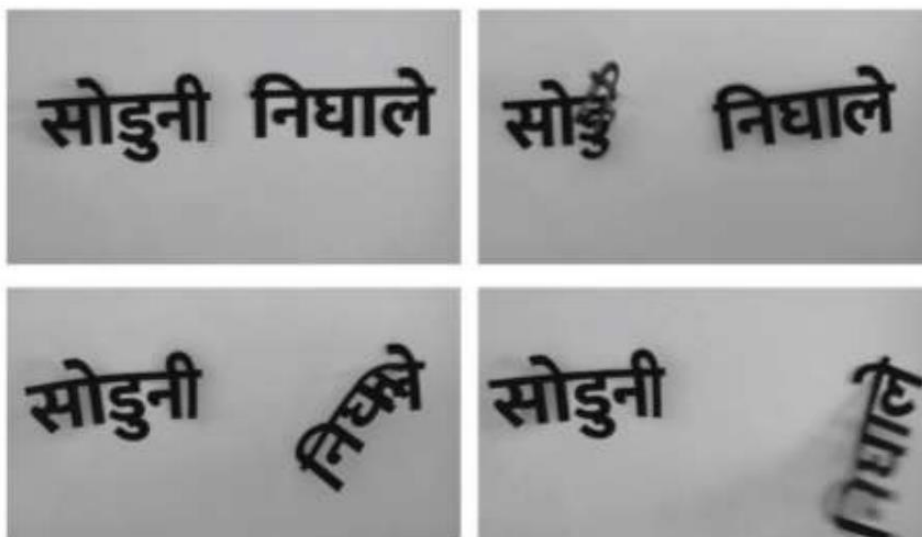 सोडुनी निघाले
सोडुनी निघाले
सोडुनी निघाले
सोडुनी निघाले